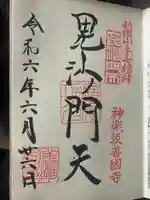 新宿山ノ手七福神
毘沙門天
神楽坂善國寺
令和六年六月廿二日